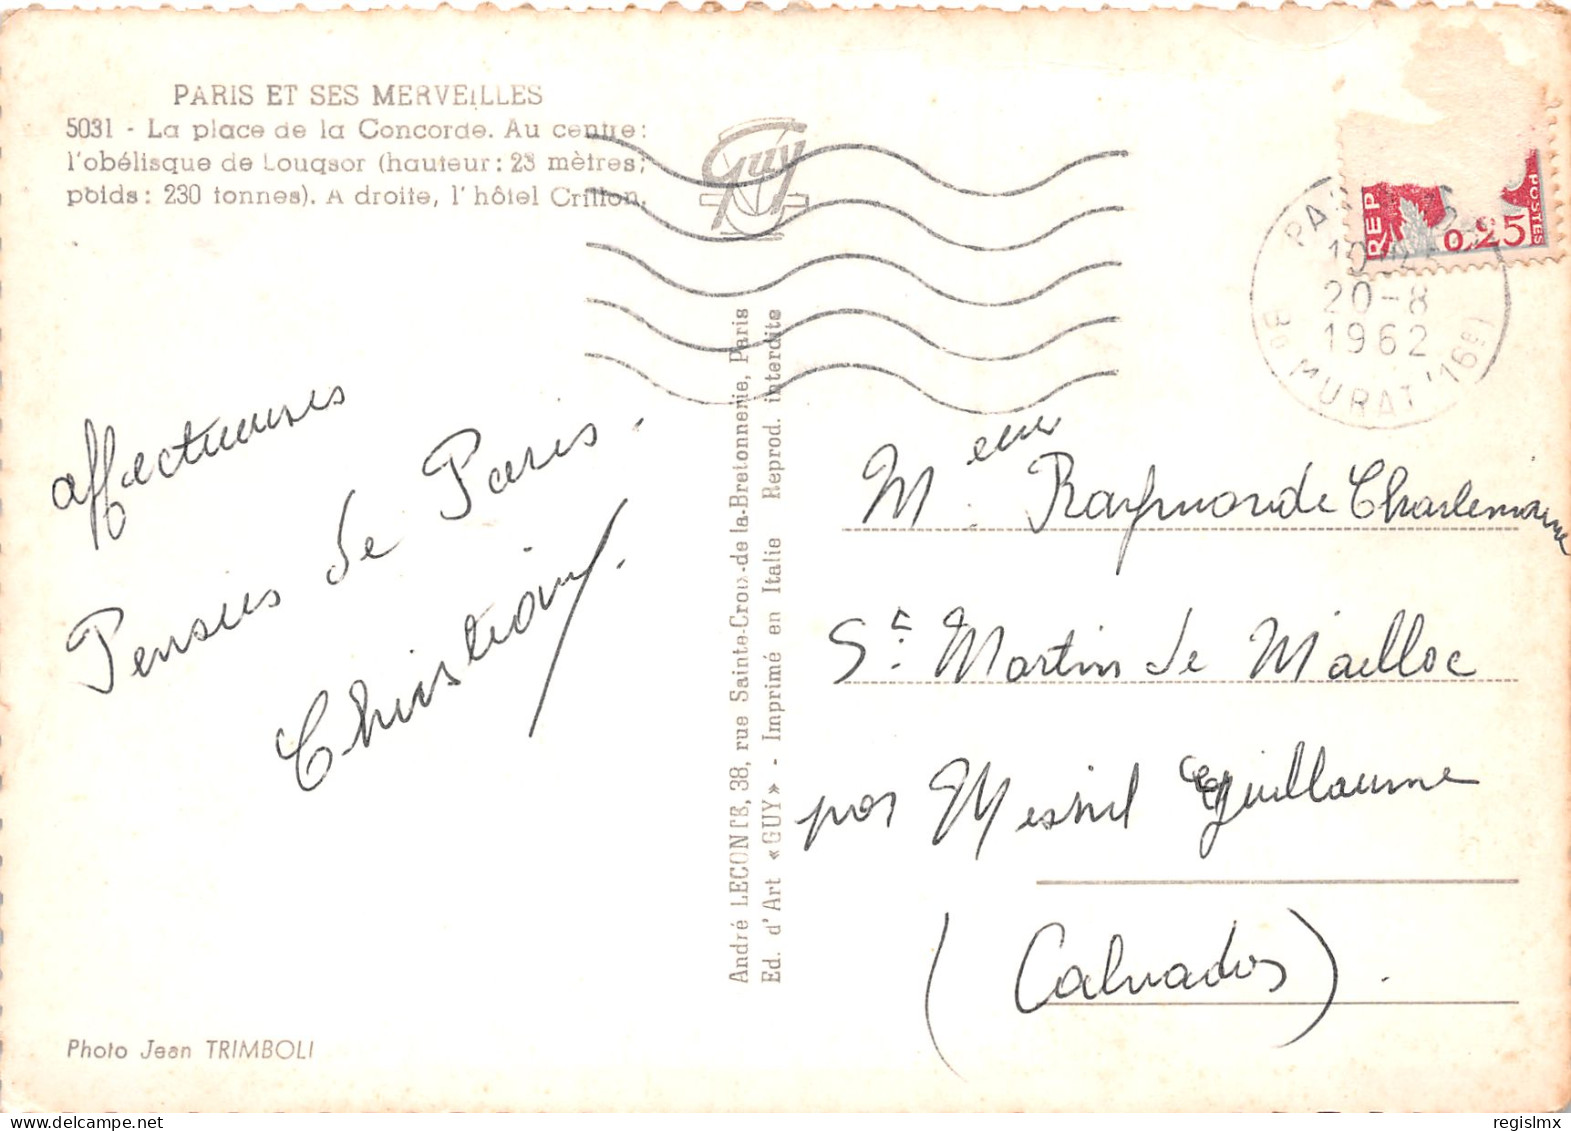 PARIS ET SES MERVEILLES
5031 - La place de la Concorde. Au centre:
l'obélisque de Louqsor (hauteur: 23 mètres;
poids: 230 tonnes). A droite, l'hôtel Crillon.
Guy
REP
0,25
POSTES
20-8
1962
Bd MURAT (16e)
affectueuses
Pensées de Paris.
Christiany.
André LECONTE, 38, rue Sainte-Croix-de-la-Bretonnerie, Paris
Ed. d'Art «GUY» - Imprimé en Italie Reprod. interdite
Raymonde Charlemaine
St. Martin de Mailloc
par Mesnil Guillaume
(Calvados).
Photo Jean TRIMBOLI
regislmx